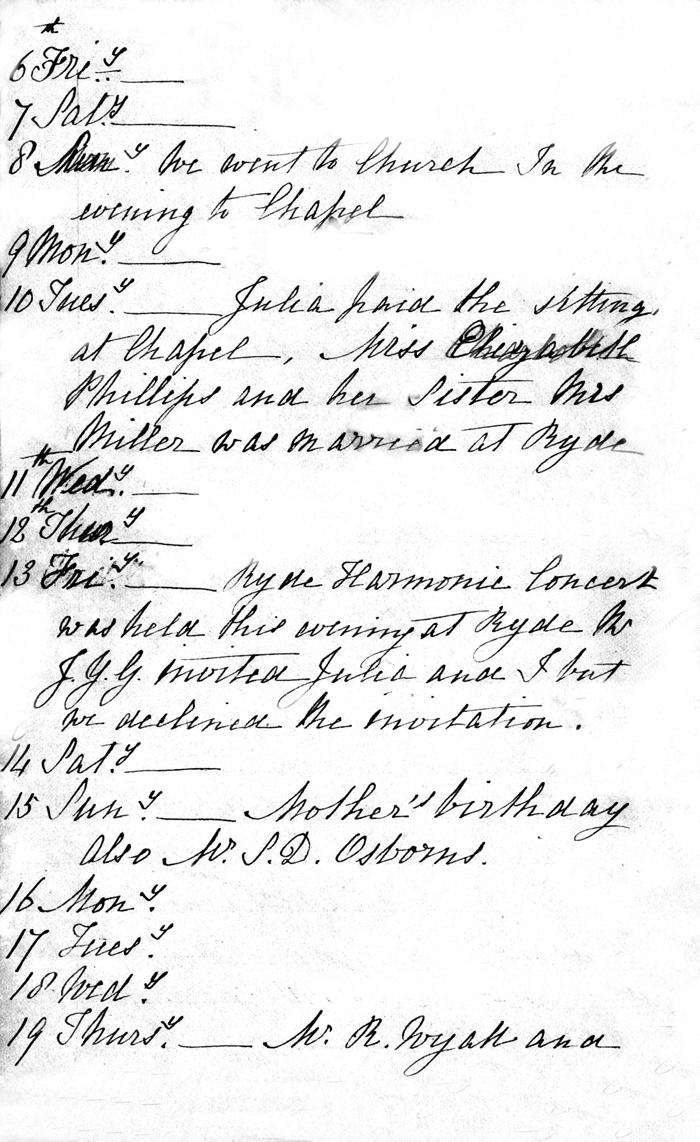 6th Friy.
7 Saty.
8 Suny. We went to Church In the
evening to Chapel
9 Mony.
10 Tuesy. Julia paid the sitting,
at Chapel, Miss Elizabeth
Phillips and her Sister Mrs
Miller was married at Ryde
11th Wedy.
12th Thury
13 Friy. Ryde Harmonic Concert
was held this evening at Ryde Mr
J.Y.G. invited Julia and I but
we declined the invitation.
14 Saty.
15 Suny. Mother's birthday
Also Mr. S.D. Osborns.
16 Mony.
17 Tuesy.
18 Wedy.
19 Thursy. Mr. R. Wyatt and